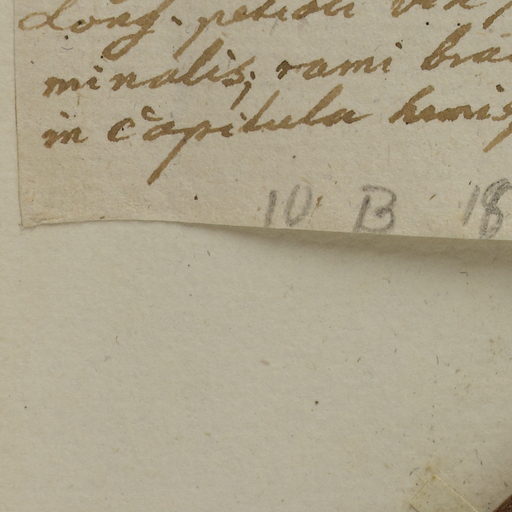 Long. petioli
minalis; rami
in capitula
10 B 18